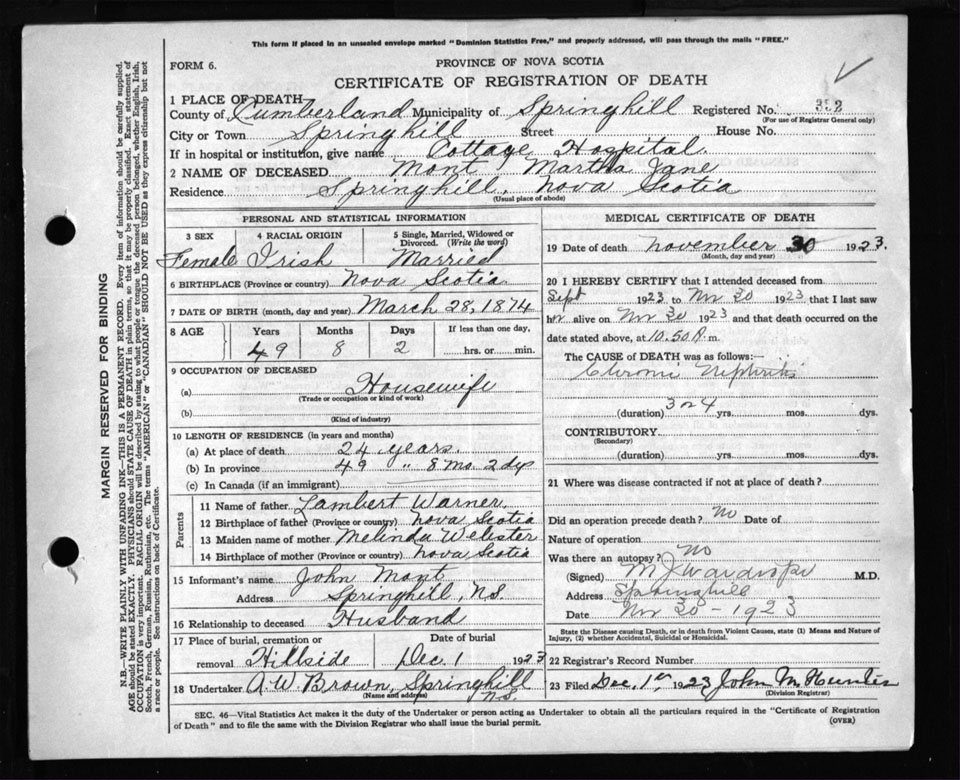 This form if placed in an unsealed envelope marked "Dominion Statistics Free," and properly addressed, will pass through the mails "FREE."
FORM 6.
PROVINCE OF NOVA SCOTIA
CERTIFICATE OF REGISTRATION OF DEATH
1 PLACE OF DEATH
County of Cumberland Municipality of Springhill Registered No. 392
(For use of Registrar General only)
City or Town Springhill Street House No.
If in hospital or institution, give name Cottage Hospital.
2 NAME OF DECEASED Mont Martha Jane
Residence Springhill, Nova Scotia
(Usual place of abode)
PERSONAL AND STATISTICAL INFORMATION
3 SEX 4 RACIAL ORIGIN 5 Single, Married, Widowed or Divorced. (Write the word)
Female Irish Married
6 BIRTHPLACE (Province or country) Nova Scotia
7 DATE OF BIRTH (month, day and year) March 28, 1874
8 AGE Years Months Days If less than one day,
49 8 2 hrs. or min.
9 OCCUPATION OF DECEASED
(a) Housewife
(Trade or occupation or kind of work)
(b)
(Kind of industry)
10 LENGTH OF RESIDENCE (in years and months)
(a) At place of death 24 years.
(b) In province 49 " 8 Mo. 2 dys
(c) In Canada (if an immigrant)
Parents
11 Name of father Lambert Warner
12 Birthplace of father (Province or country) Nova Scotia
13 Maiden name of mother Melinda Webster
14 Birthplace of mother (Province or country) Nova Scotia
15 Informant's name John Mont
Address Springhill, N.S.
16 Relationship to deceased Husband
17 Place of burial, cremation or removal Hillside Date of burial Dec. 1 1923
18 Undertaker A.W. Brown, Springhill N.S.
(Name and address)
MEDICAL CERTIFICATE OF DEATH
19 Date of death November 30 1923.
(Month, day and year)
20 I HEREBY CERTIFY that I attended deceased from
Sept 1923 to Nov 30 1923, that I last saw
her alive on Nov 30 1923 and that death occurred on the
date stated above, at 10.50 P. m.
The CAUSE of DEATH was as follows:
Chronic Nephritis
(duration) 3 or 4 yrs. mos. dys.
CONTRIBUTORY
(Secondary)
(duration) yrs. mos. dys.
21 Where was disease contracted if not at place of death?
Did an operation precede death? No Date of
Nature of operation
Was there an autopsy? No
(Signed) M J Wardrope M.D.
Address Springhill
Date Nov 30 - 1923
State the Disease causing Death, or in death from Violent Causes, state (1) Means and Nature of
Injury, (2) whether Accidental, Suicidal or Homicidal.
22 Registrar's Record Number
23 Filed Dec. 1st 1923 John M Hunter
(Division Registrar)
SEC. 46—Vital Statistics Act makes it the duty of the Undertaker or person acting as Undertaker to obtain all the particulars required in the "Certificate of Registration
of Death" and to file the same with the Division Registrar who shall issue the burial permit.
(OVER)
MARGIN RESERVED FOR BINDING
N.B.—WRITE PLAINLY WITH UNFADING INK—THIS IS A PERMANENT RECORD. Every item of information should be carefully supplied.
AGE should be stated EXACTLY. PHYSICIANS should STATE CAUSE OF DEATH in plain terms, so that it may be properly classified. Exact statement of
OCCUPATION is very important. RACIAL ORIGIN will be described by stating to what people or tongue the deceased person belonged, whether English, Irish,
Scotch, French, German, Russian, Ruthenian, etc. The terms "AMERICAN" or "CANADIAN" SHOULD NOT BE USED as they express citizenship but not
a race or people. See instructions on back of Certificate.